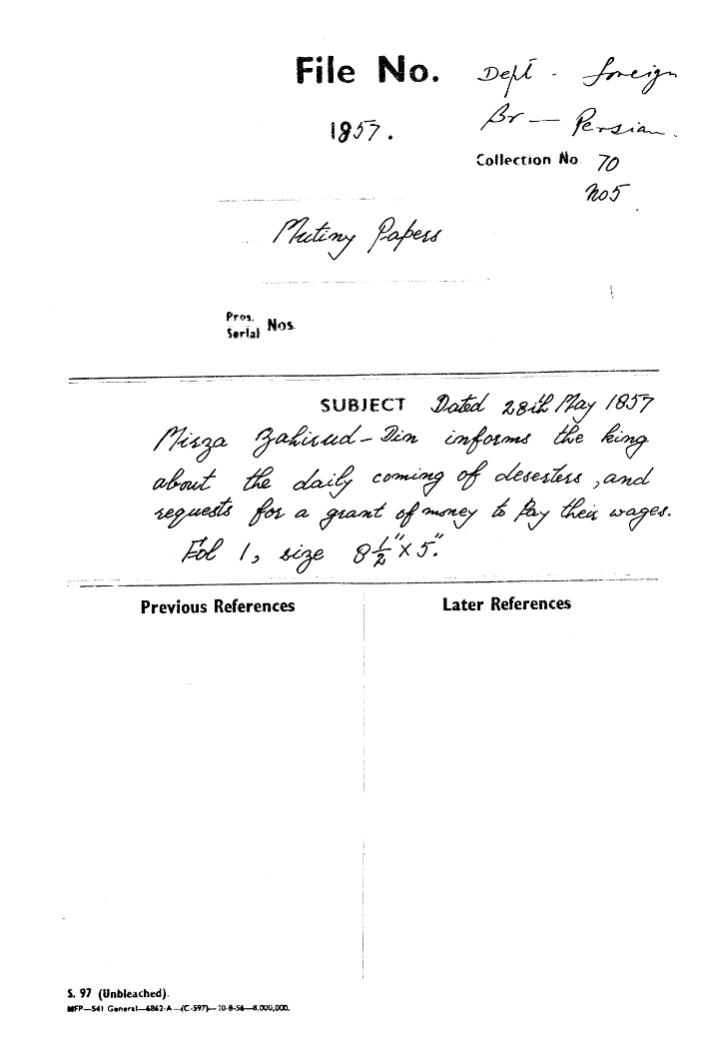 File No.
Dept - foreign
1857.
Br — Persian.
Collection No 70
no 5
Mutiny Papers
Pros.
Serial Nos.
SUBJECT Dated 28th May 1857
Mirza Zahirud-Din informs the king
about the daily coming of deserters, and
requests for a grant of money to Pay their wages.
Fol 1, size 8½"×5".
Previous References
Later References
S. 97 (Unbleached).
MFP—541 General—6862-A—(C-597)—20-8-56—8,000,000.